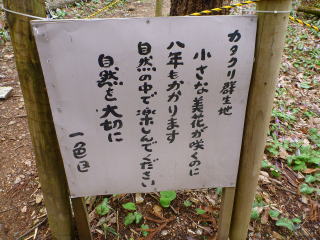 カタクリ群生地
小さな美花が咲くのに
八年もかかります
自然の中で楽しんでください
自然を大切に
一色区